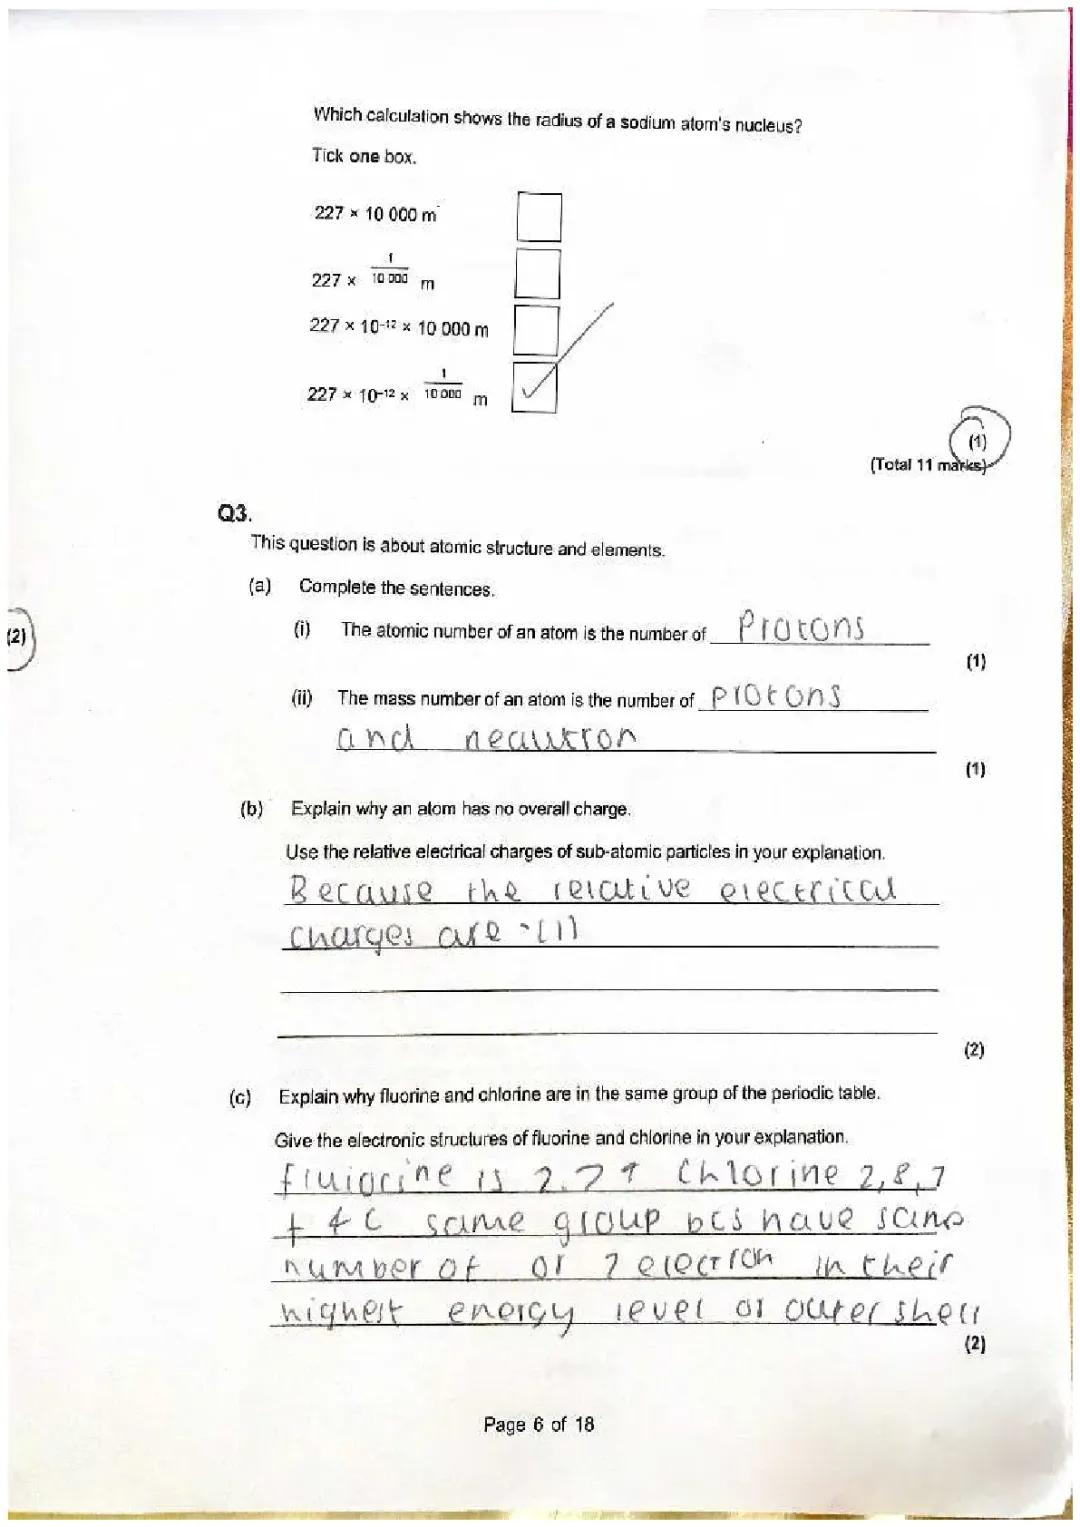 Which calculation shows the radius of a sodium atom's nucleus?
Tick one box.
227 × 10 000 m
227 × 1/10 000 m
227 × 10⁻¹² × 10 000 m
227 × 10⁻¹² × 1/10 000 m
(1)
(Total 11 marks)
Q3.
This question is about atomic structure and elements.
(a) Complete the sentences.
(2)
(i) The atomic number of an atom is the number of Protons
(1)
(ii) The mass number of an atom is the number of protons
and neawtron
(1)
(b) Explain why an atom has no overall charge.
Use the relative electrical charges of sub-atomic particles in your explanation.
Because the relative electrical
charges are
(2)
(c) Explain why fluorine and chlorine are in the same group of the periodic table.
Give the electronic structures of fluorine and chlorine in your explanation.
fluiorine is 2.7 Chlorine 2,8,7
same group bcs have same
number of or 7 electron in their
highest energy level or outer shell
(2)
Page 6 of 18